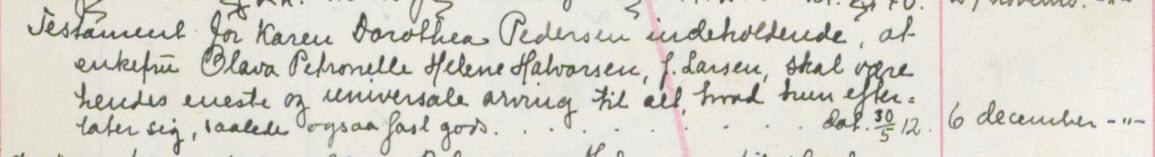 Testament for Karen Dorothea Pedersen indeholdende, at
enkefru Olava Petronelle Helene Halvorsen, f. Larsen, skal være
hendes eneste og universale arving til alt, hvad hun efter=
later sig, saalede ogsaa fast gods. . . . . . . . . . dat. 30/5 12. 6 december -"-